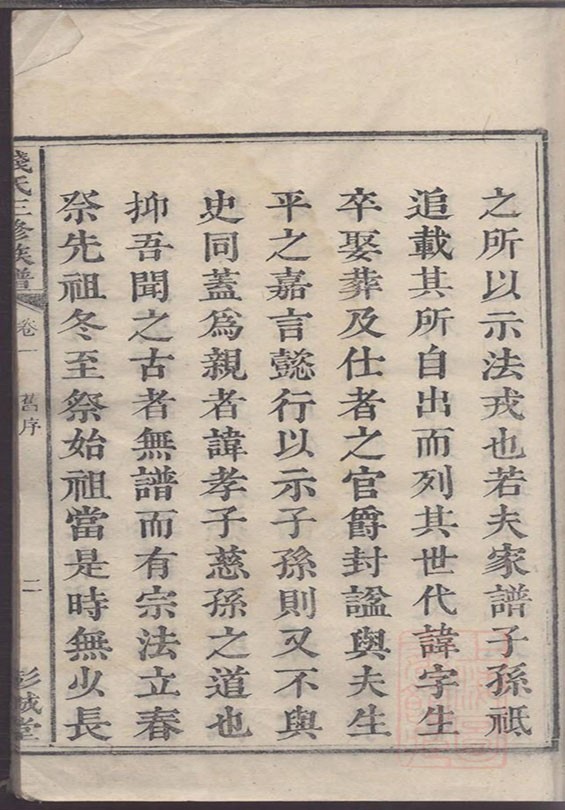 之所以示法戎也若夫家譜子孫祗
追載其所自出而列其世代諱字生
卒娶葬及仕者之官爵封諡與夫生
平之嘉言懿行以示子孫則又不與
史同蓋爲親者諱孝子慈孫之道也
抑吾聞之古者無譜而有宗法立春
祭先祖冬至祭始祖當是時無少長
錢氏三修族譜
卷一
舊序
二
彭城堂